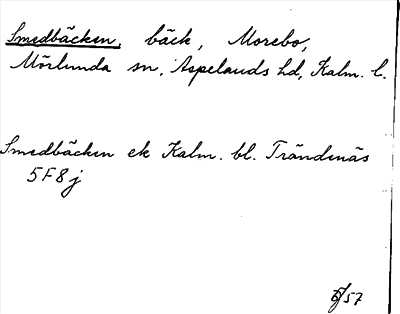 Smedbäcken, bäck, Morebo,
Mörlunda sn, Aspelands hd, Kalm. l.
Smedbäcken ek Kalm. bl. Trändenäs
5F8j
/57